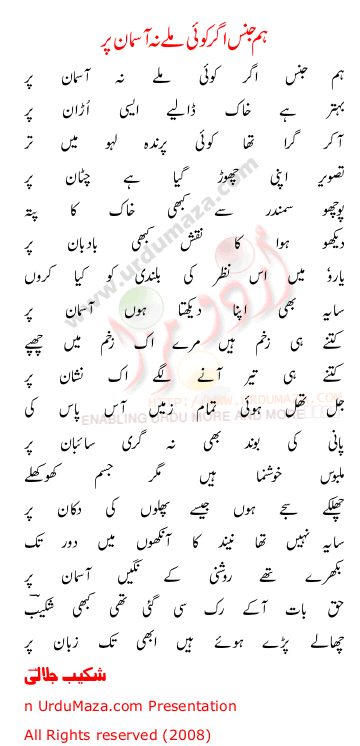 ہم جنس اگر کوئی ملے نہ آسمان پر
ہم جنس اگر کوئی ملے نہ آسمان پر
بہتر ہے خاک ڈالیے ایسی اُڑان پر
آکر گرا تھا کوئی پرندہ لہو میں تر
تصویر اپنی چھوڑ گیا ہے چٹان پر
پوچھو سمندر سے کبھی خاک کا پتہ
دیکھو ہوا کا نقش کبھی بادبان پر
یارو میں اس نظر کی بلندی کو کیا کروں
سایہ بھی اپنا دیکھتا ہوں آسمان پر
کتنے ہی زخم ہیں مرے اک زخم میں چھپے
کتنے ہی تیر آنے لگے اک نشان پر
جل تھل ہوئی تمام زمیں آس پاس کی
پانی کی بوند بھی نہ گری سائبان پر
ملبوس خوشنما ہیں مگر جسم کھوکھلے
چھلکے سجے ہوں جیسے پھلوں کی دکان پر
سایہ نہیں تھا نیند کا آنکھوں میں دور تک
بکھرے تھے روشنی کے نگیں آسمان پر
حق بات آکے رک سی گئی تھی کبھی شکیبؔ
چھالے پڑے ہوئے ہیں ابھی تک زبان پر
شکیب جلالی
n UrduMaza.com Presentation
All Rights reserved (2008)
www.urdumaza.com
اردو مزا
HTTP://WWW.URDUMAZA.COM
ENABLING URDU MORE AND MORE